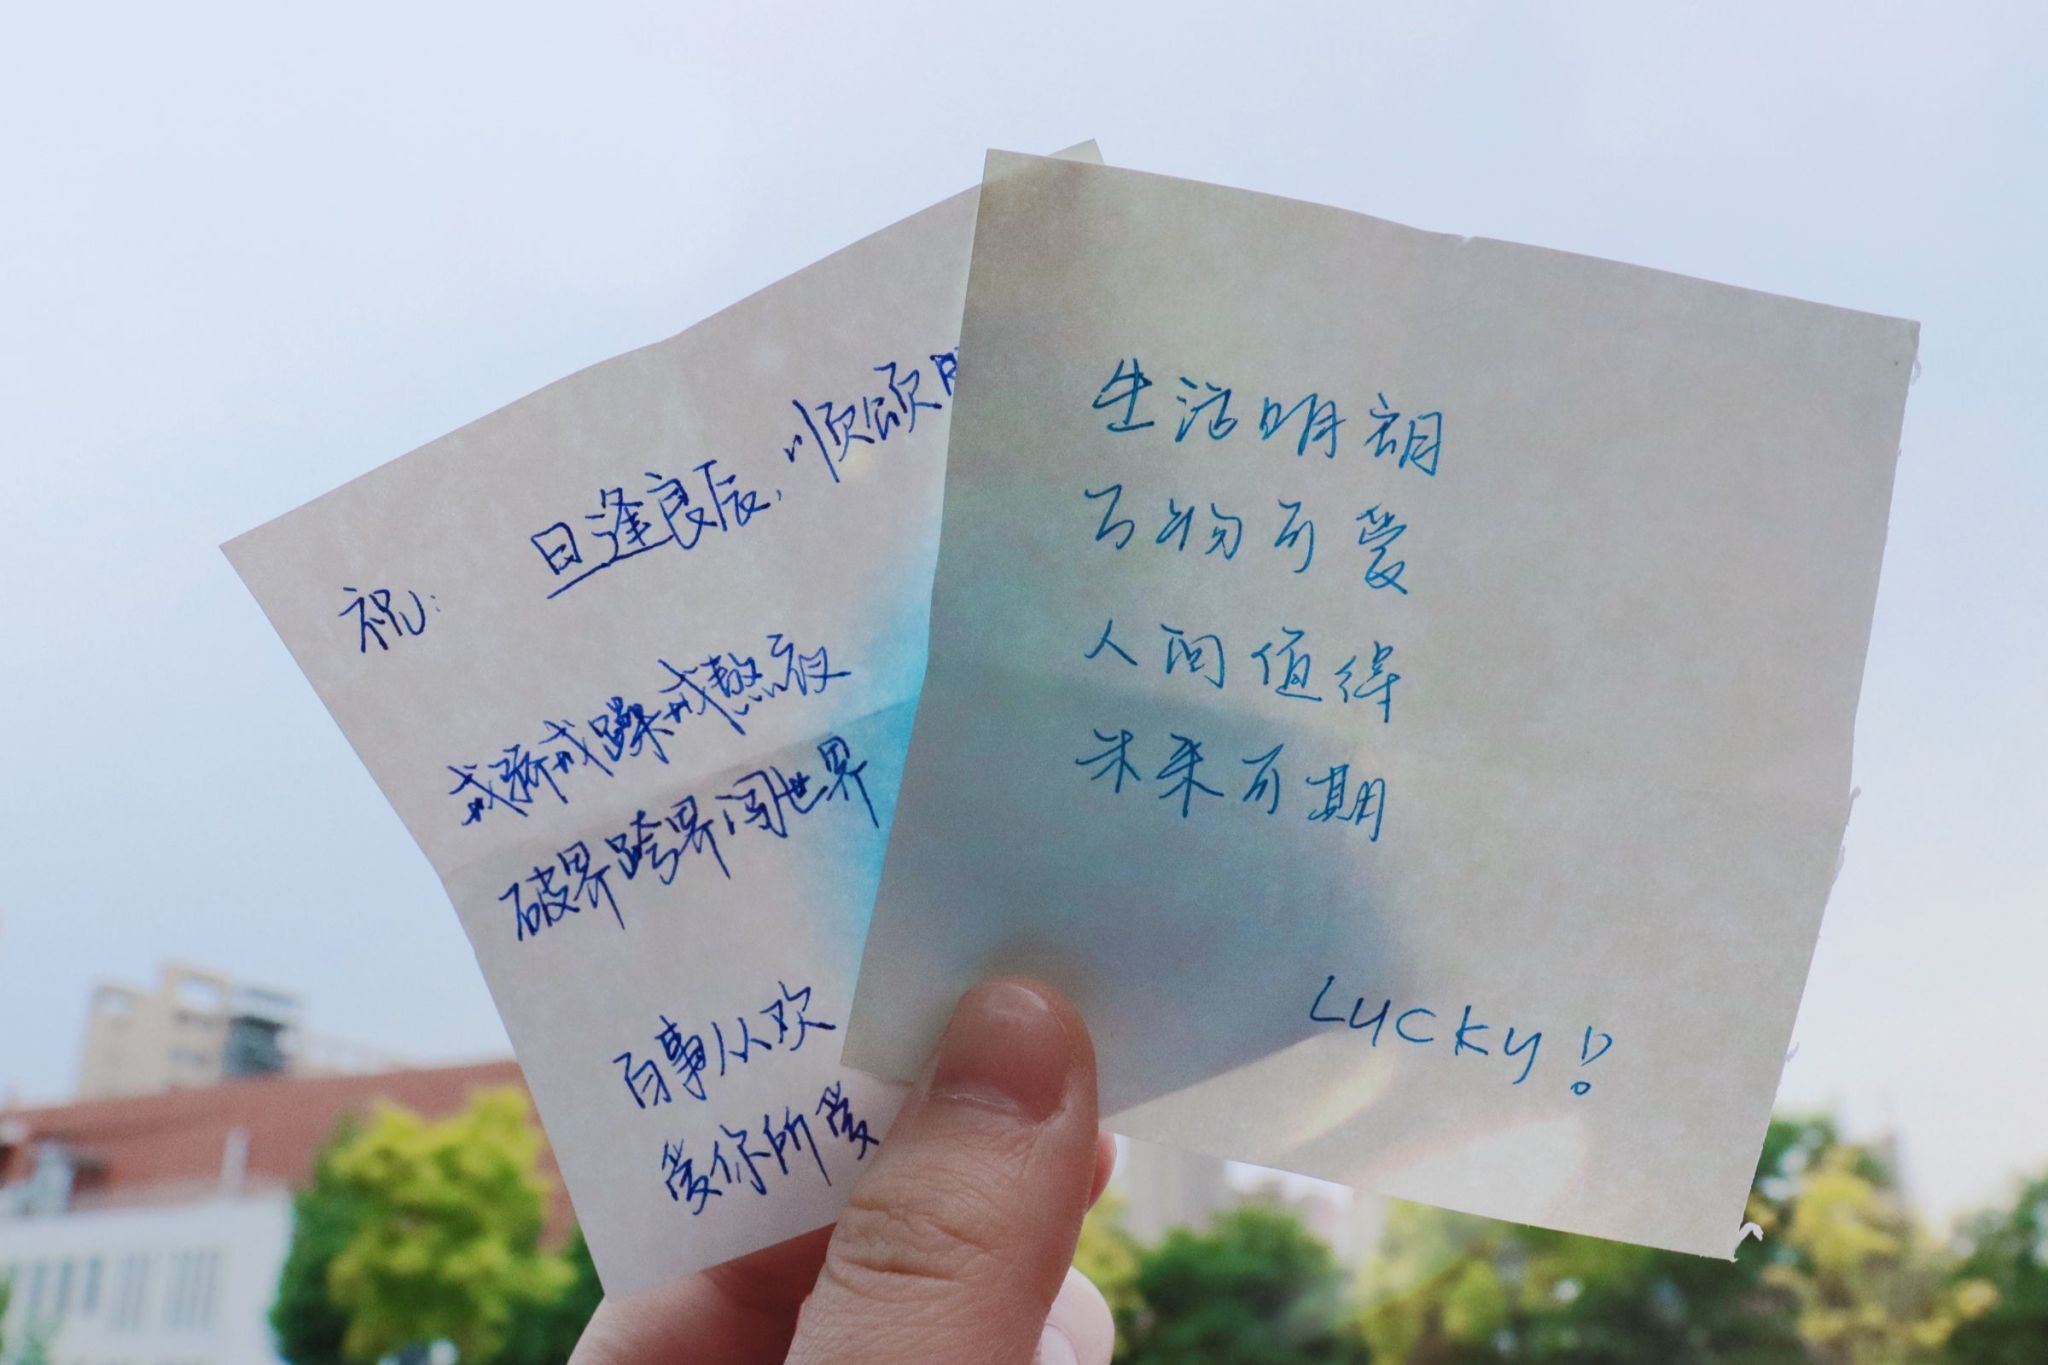 祝：
日逢良辰，顺颂
戒骄戒躁戒熬夜
破界跨界闯世界
百事从欢
爱你所爱
生活明朗
万物可爱
人间值得
未来可期
Lucky！